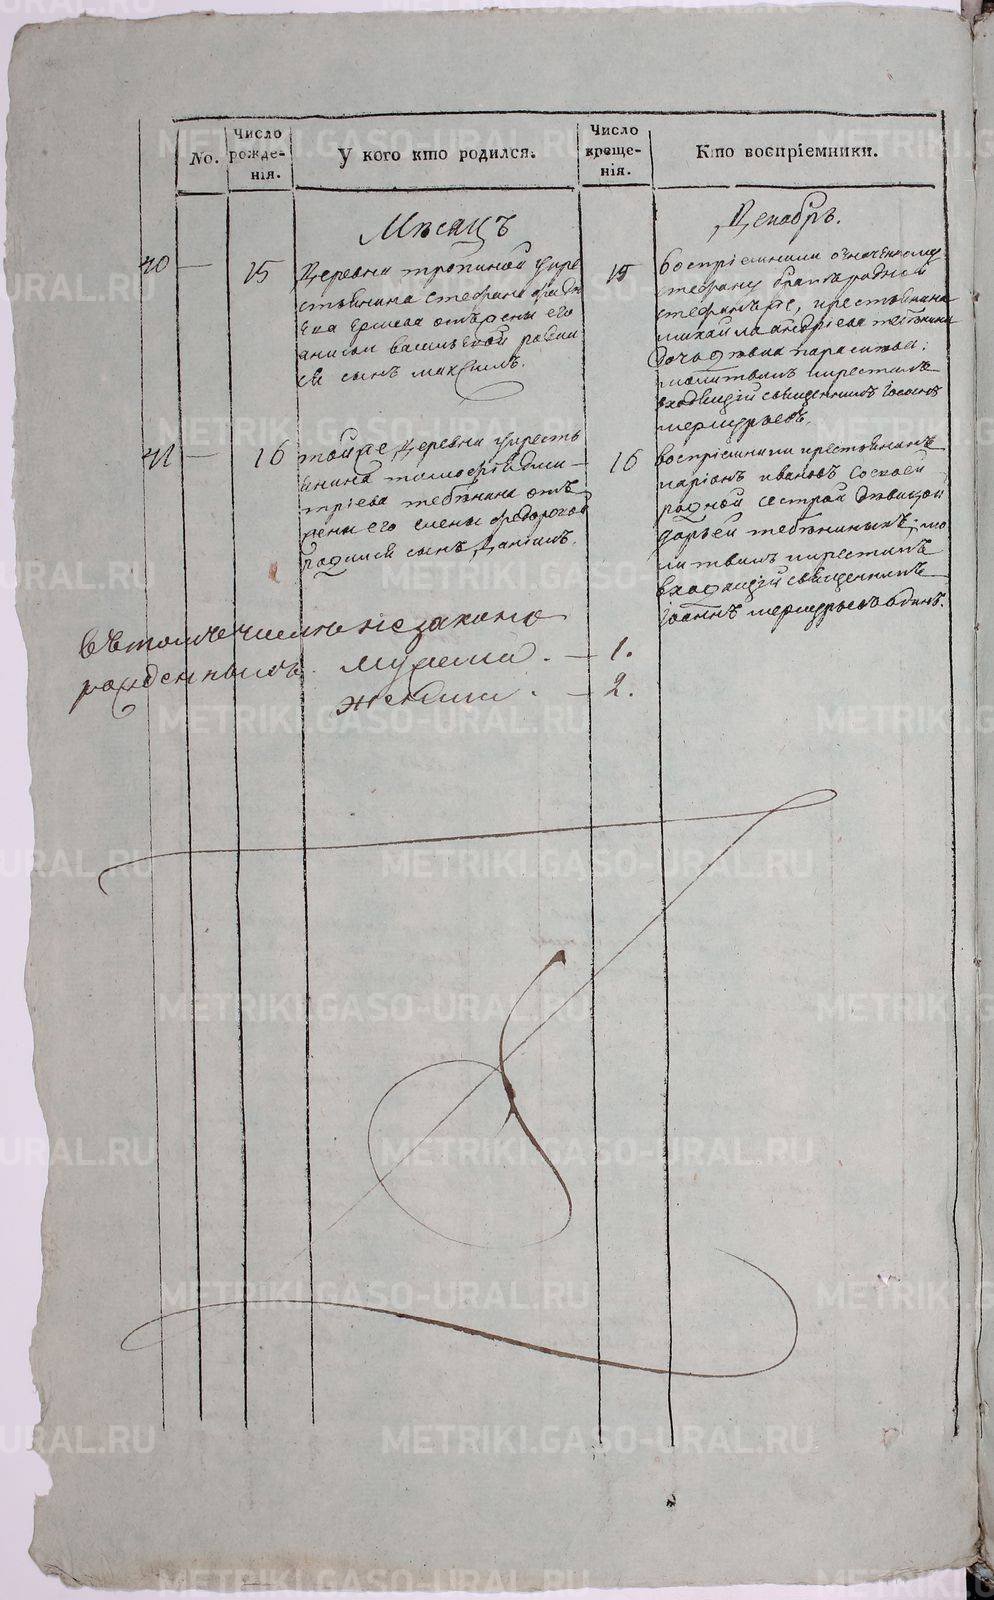 No.
Число рожденія.
У кого кто родился.
Число крещенія.
Кто воспріемники.
Мѣсяцъ
Декабрь.
40
15
Деревни тропиной кре
стьянина стефана
Ева Ершева отъ жены его
анисьи васильевой роди
ся сынъ максимъ.
15
воспріемники означенному
стефану братъ родной
крестьянина
михайла андріева тебѣнкина
дочь девка параскова:
молитвилъ и крестилъ
священникъ Іоаннъ
41
16
тойже деревни кресть
янина тимофѣя дми
тріева тебѣнкина отъ
жены его елены федоровой
родился сынъ Даніилъ.
16
воспріемники крестьянинъ
ларіонъ ивановъ со своей
родной сестрой девицой
дарьей тебѣнкиныхъ; мо
литвилъ и крестилъ
священникъ
Іоаннъ
въ томъ числѣ незаконо
рожденныхъ. мужеска. — 1.
женска. — 2.
METRIKI.GASO-URAL.RU